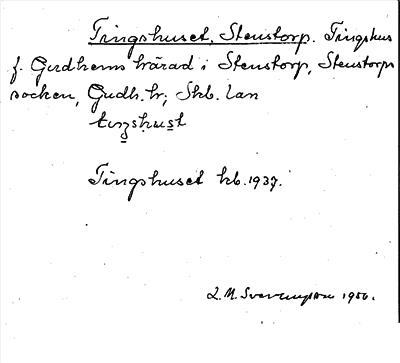 Tingshuset, Stenstorp. Tingshus
f. Gudhems härad i Stenstorp, Stenstorps
socken, Gudh. hr; Skb. län
Tingshuset kb. 1937.
1950.